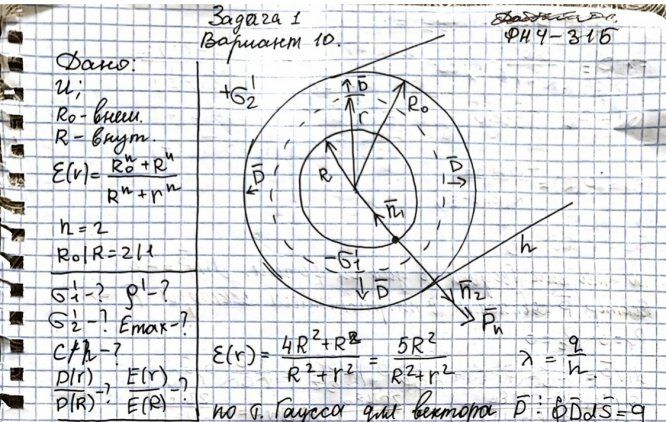 Задача 1
Вариант 10.
ФН4-31Б
Дано:
U;
R₀ - внеш.
R - внут.
ε(r) = (R₀ⁿ + Rⁿ) / (Rⁿ + rⁿ)
n = 2
R₀/R = 2/1
σ₁' - ? ρ' - ?
σ₂' - ? Eмак - ?
C/h - ?
D(r)/D(R) E(r)/E(R) - ?
+σ₂'
D̄
r
R₀
R
D̄
D̄
n̄₁
-σ₁'
D̄
h
n̄₂
P̄n
ε(r) = (4R² + R²) / (R² + r²) = 5R² / (R² + r²) λ = q/h
по т. Гаусса для вектора D̄: ∮D̄dS̄ = q